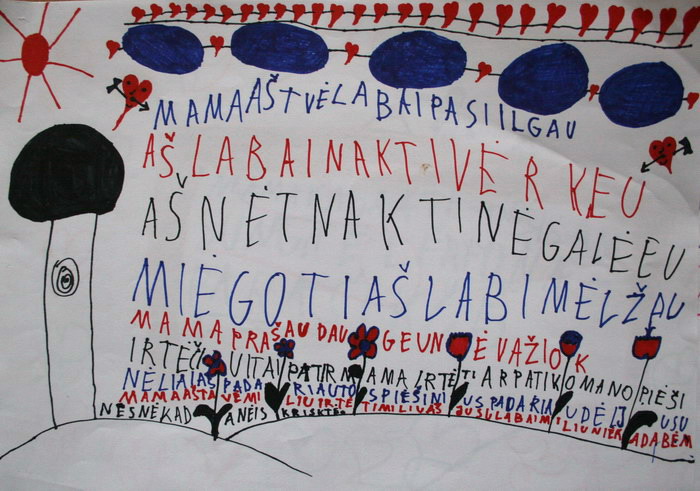 MAMAAŠTVĖLABAIPASIILGAU
AŠLABAINAKTIVĖRKEU
AŠNĖTNAKTINĖGALĖEU
MIĖGOTIAŠLABIMĖLŽAU
MAMAPRAŠAUDAUGEUNĖVAŽIOK
IRTĖČIUITAIPATIRMAMAIRTĖTIARPATIKOMANOPIĖŠI
NĖLIAIAŠPADARIAUTOSPIĖŠINIUSPADARIAUDĖLJUSU
MAMAAŠTAVĖMILIUIRTĖTIMILIUAŠJUSULABAIMILIUNIEKADABĖM
NĖSNĖKADANĖIS